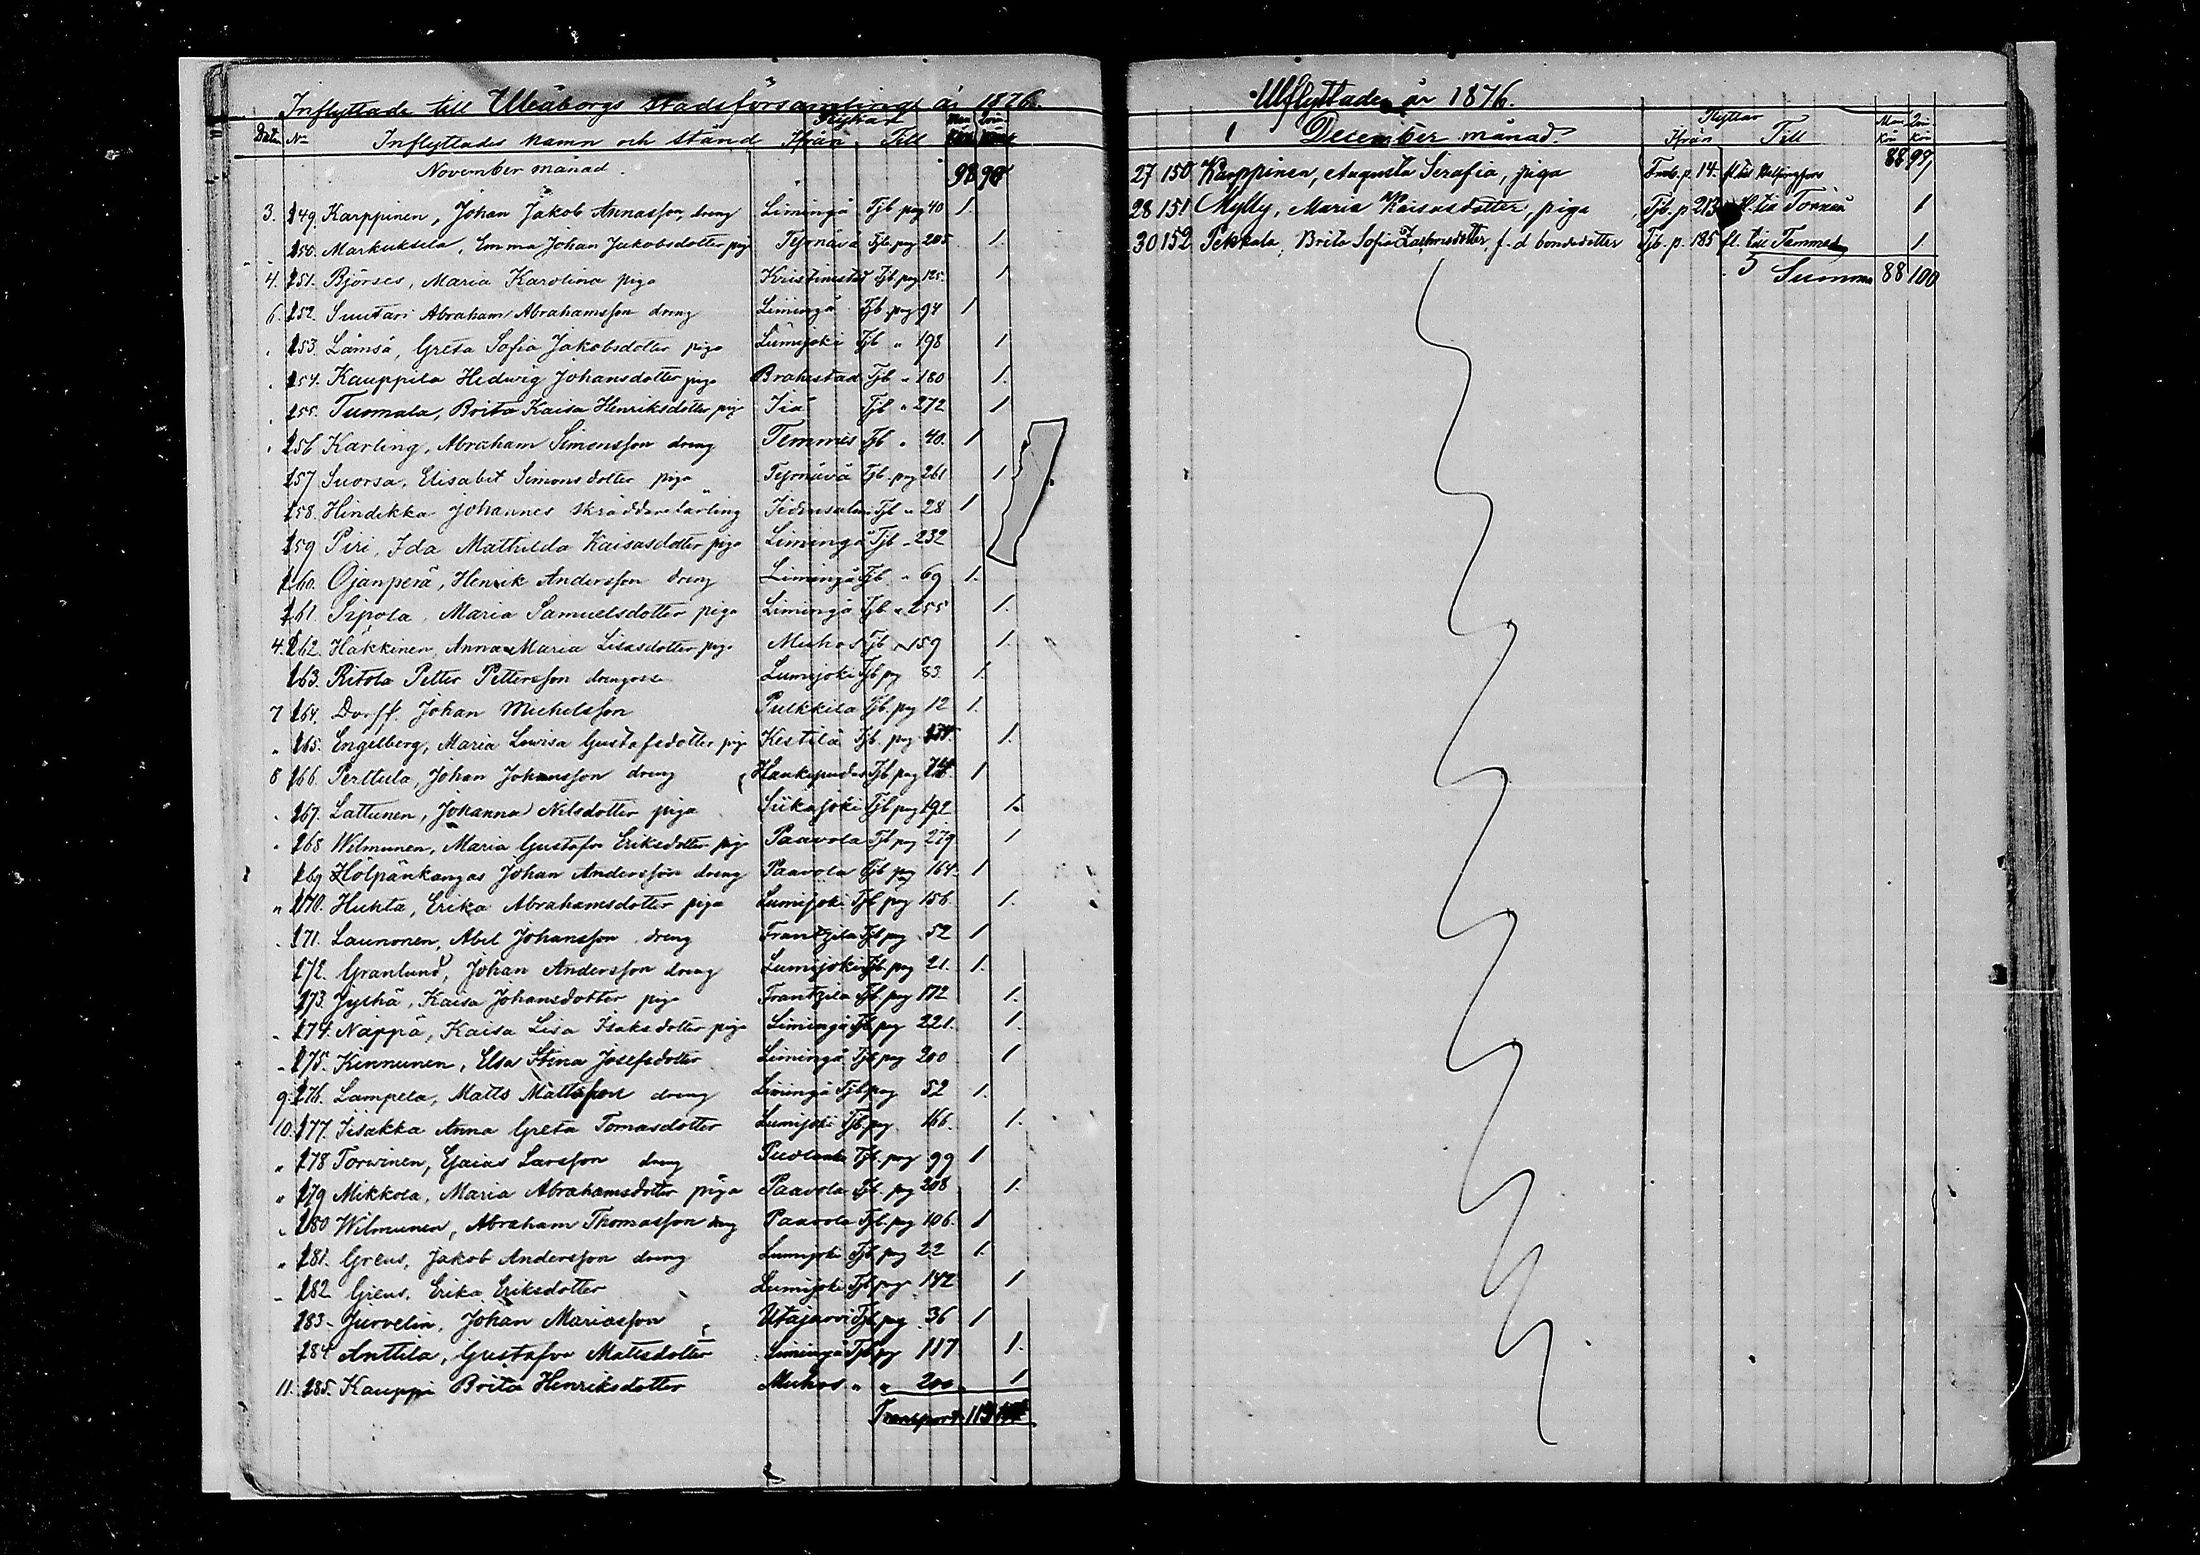 Inflyttade till Uleåborgs stadsförsamling år 1876.
Flyttar
Datum No Inflyttades namn och stånd Ifrån Till Man Kön Qvin Kön
November månad. 98 98
3. 249. Karppinen, Johan Jakob Annasson, dreng Limingå Tjb pag 40 1.
250. Markuksela, Emma Johan Jakobsdotter pig Tyrnävä Tjb pag 205 1.
4. 251. Björses, Maria Karolina piga Kristinestad Tjb pag 125. 1
6. 252. Suutari Abraham Abrahamsson dreng Limingå Tjb pag 94 1
253. Lämsä, Greta Sofia Jakobsdotter piga Lumijoki Tjb " 198 1
254. Kauppila Hedwig Johansdotter piga Brahestad Tjb " 180 1.
255. Tuomala, Brita Kaisa Henriksdotter pig Iiå Tjb " 272 1
256 Karling, Abraham Simonsson dreng Temmes Tjb " 40. 1
257 Suorsa, Elisabet Simonsdotter piga Tyrnävä Tjb. pag 261 1
258. Hindikka Johannes skräddarelärling Idensalmi Tjb " 28 1
259 Piri, Ida Mathilda Kaisasdotter piga Limingå Tjb " 232
260. Ojanperä, Henrik Andersson dreng Limingå Tjb " 69 1.
261. Sipola, Maria Samuelsdotter piga Limingå Tjb " 255 1.
4. 262. Häkkinen, Anna Maria Lisasdotter piga Muhos Tjb " 159 1.
263. Ritola Petter Pettersson Lumijoki Tjb pag 83 1.
7 264. Dorff. Johan Michelsson Pulkkila Tjb. pag 12 1.
" 265. Engelberg, Maria Lovisa Gustafsdotter pig Kestilä Tjb. pag 1.
8 266. Perttula, Johan Johansson dreng Haukipudas Tjb pag 1
267. Lattunen, Johanna Nilsdotter piga Siikajoki Tjb pag 192 1.
268 Wilmunen, Maria Gustafva Eriksdotter pig Paavola Tjb pag 279 1
269 Hölpänkangas Johan Andersson dreng Paavola Tjb pag 164. 1
" 270. Huhta, Erika Abrahamsdotter piga Lumijoki Tjb pag 156. 1.
271. Launonen, Abel Johansson dreng Frantzila Tjb pag 52 1
272. Granlund, Johan Andersson dreng Lumijoki Tjb. pag 21. 1.
273. Jyskä, Kaisa Johansdotter piga Frantzila Tjb. pag 172 1.
" 274. Näppä, Kaisa Lisa Isaksdotter piga Limingå Tjb pag 221. 1.
" 275. Kinnunen, Elsa Stina Josefsdotter Limingå Tjb pag 200 1
9. 276. Lampela, Matts Mattsson dreng Limingå Tjb pag 52 1.
10. 277. Iisakka Anna Greta Tomasdotter Lumijoki Tjb pag. 166. 1.
" 278 Torvinen, Esaias Larsson dreng Pudla Tjb. pag 99 1
" 279 Mikkola, Maria Abrahamsdotter piga Paavola Tjb. pag 208 1.
" 280 Wilmunen, Abraham Thomasson dreng Paavola Tjb. pag 106. 1
" 281. Greus, Jakob Andersson dreng Lumijoki Tjb pag 22 1.
" 282. Greus, Erika Eriksdotter Lumijoki Tjb pag 142 1
283. Jurvelin, Johan Mariasson Utajärvi Tjb pag 36 1
284 Anttila, Gustafva Mattsdotter Limingå Tjb pag 117 1.
11. 285. Kauppi Brita Henriksdotter Muhos " " 200 1
Transport 113
Utflyttade år 1876.
Flyttar
December månad. Ifrån Till Man Kön Qvin Kön
88 98
27 150 Karppinen, Augusta Serafia, piga Frmb. p. 14. fl. till Helsingfors
28 151 Mylly, Maria Kaisasdotter, piga Tjb. p 213 fl. till Torneå 1
30 152 Pekkala, Brita Sofia Zachrisdotter, f. d bondedotter Tjb. p. 185 fl. till Temmes 1
Summa 88 100